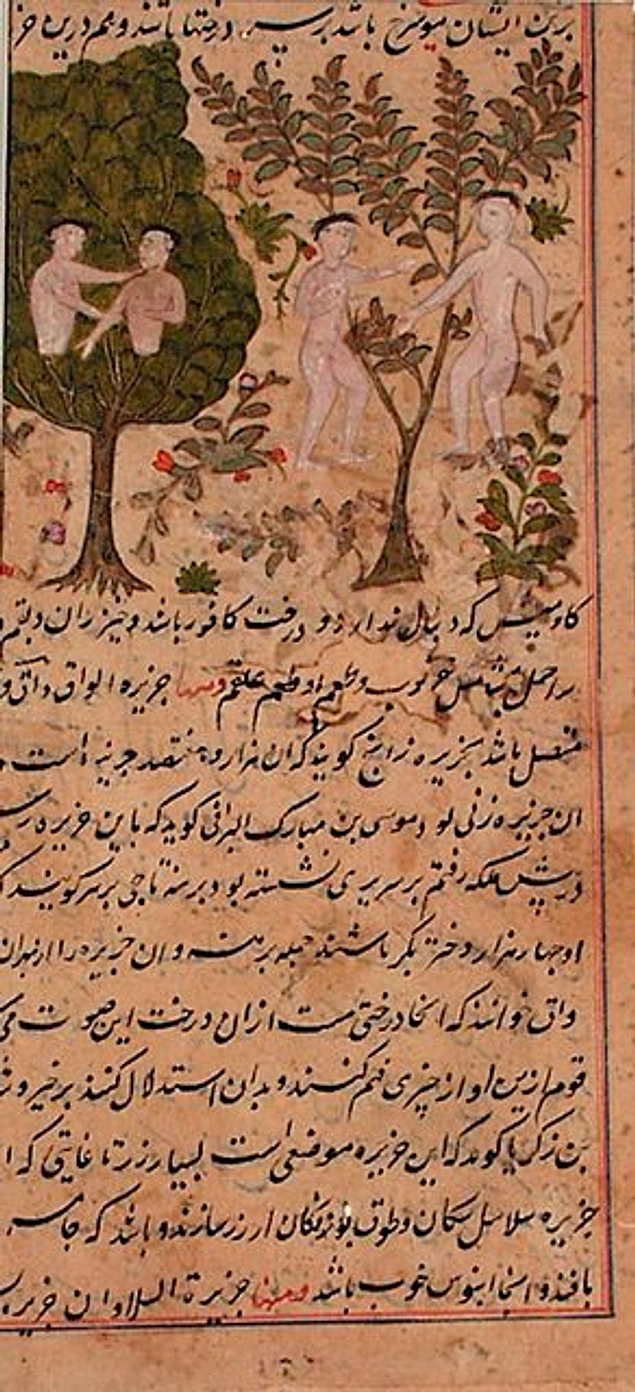 برتن ایشان موی سرخ باشد بر سر درختها باشند و هم درین جز
کاومیش که دنبال ندارد و درخت کافور باشد و خیزران و بقم
را حمل مثل خرنوب و طعم او طعم علقم ومنها جزیره الواق واق و
متصل باشد بجزیره زانج کویند که ان هزار و هفتصد جزیه است
ان جزیره زنی بود موسی بن مبارک السرافی کوید که باین جزیره رس
در پیش ملکه رفتم بر سریری نشسته بود برهنه تاجی بر سر کویند ک
او چهار هزار دختر بکر باشند جمله برهنه و ان جزیره را ازبهر ان
واق خوانند که انجا درختیست از ان درخت این صوت می
قوم ازین اواز چیزی فهم کنند و بدان استدلال کنند بر خیر و ش
بن زکریا کوید که این جزیره موضعی است بسیار زر تا غایتی که ا
جزیره سلاسل سکان و طوق بوزنکان از زر سازند و باشد که جامه
بافند و انجا ابنوس خوب باشد ومنها جزیرة السلا و ان جزیر